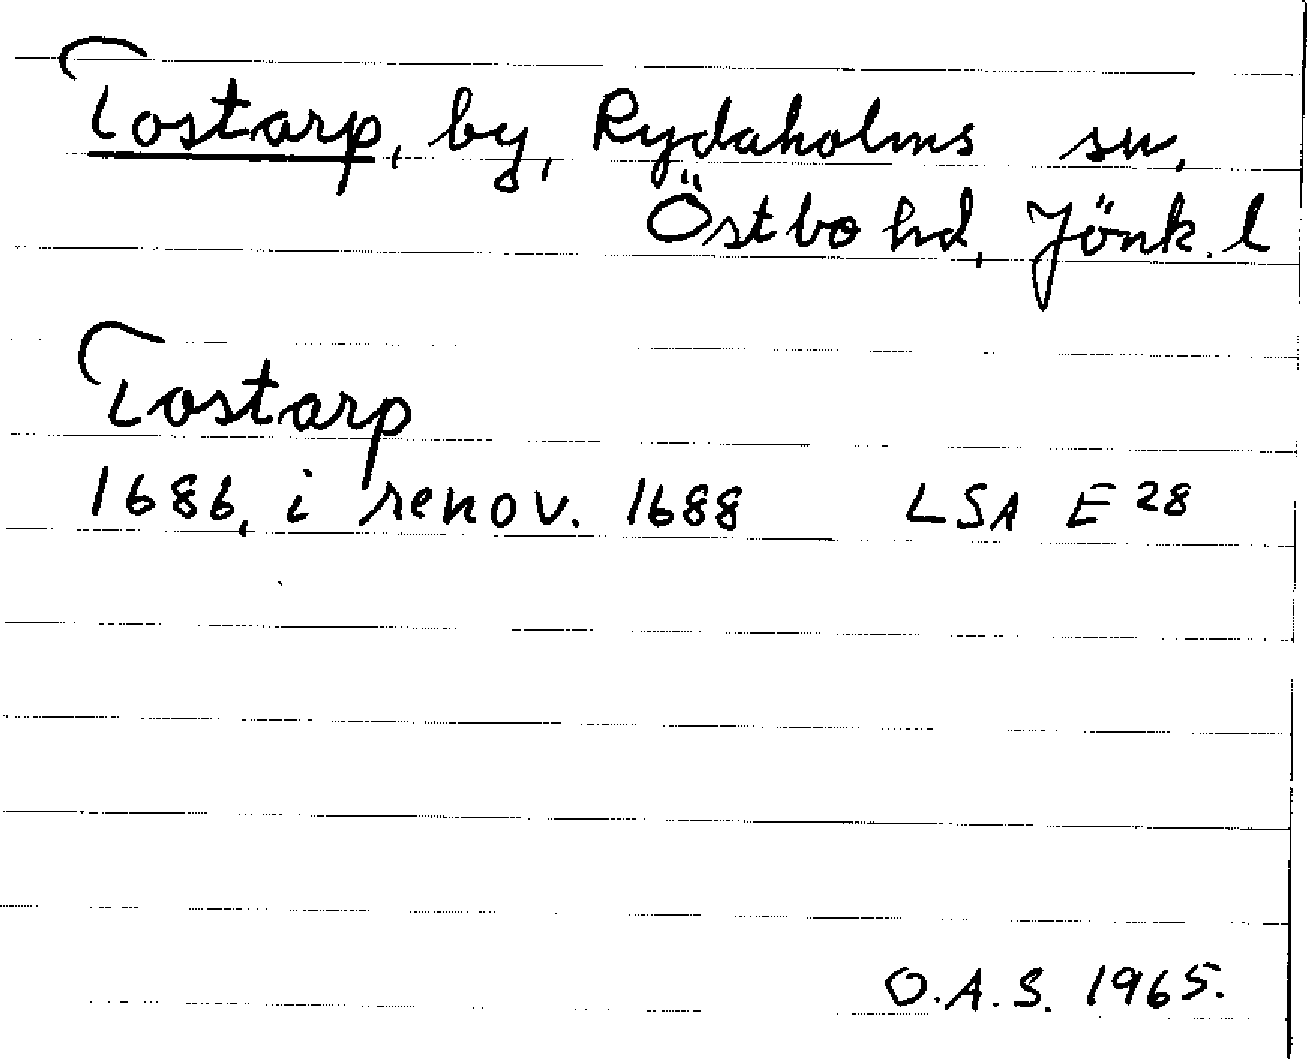 Tostarp, by, Rydaholms sn,
Östbo hd, Jönk. l
Tostarp
1686, i renov. 1688 LSA E 28
O.A.S. 1965.